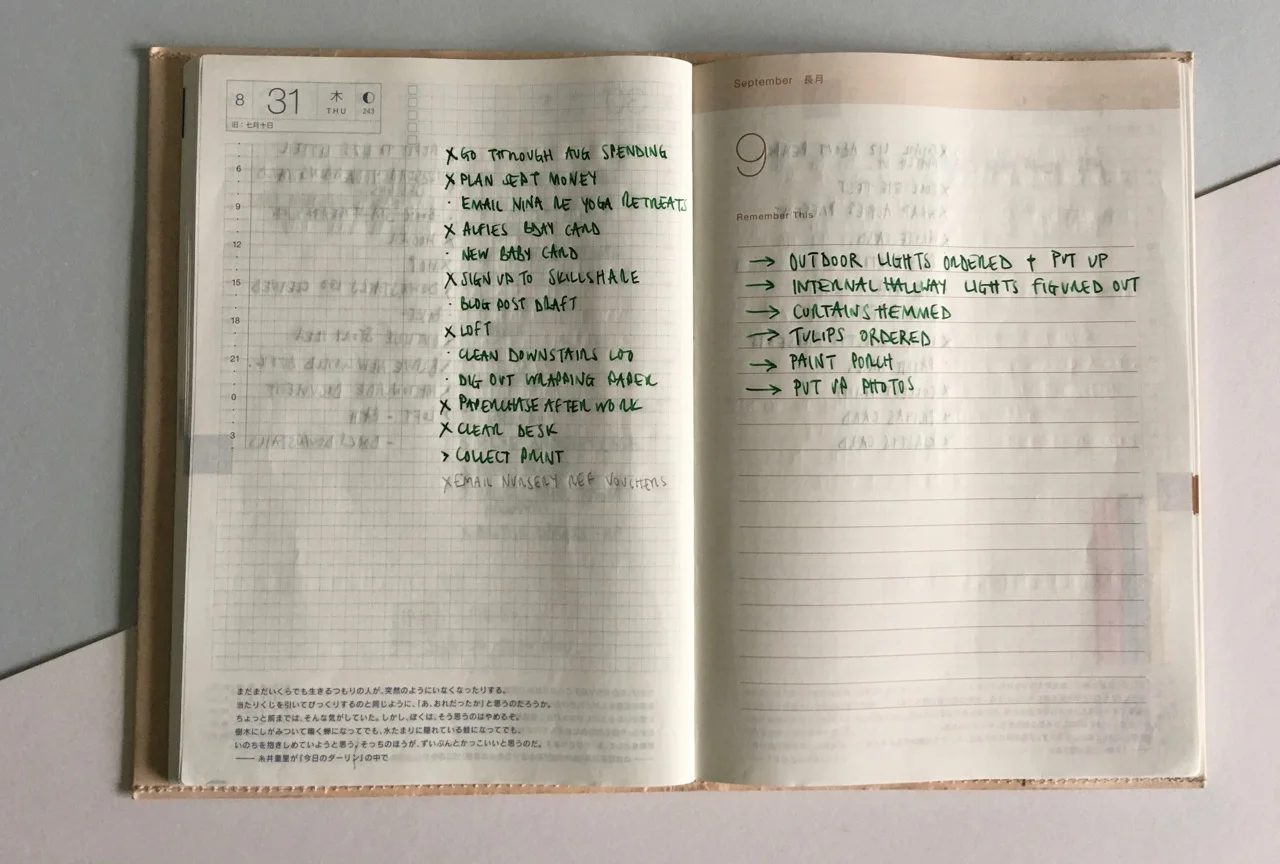 8 31 木 THU 243
旧:七月十日
X GO THROUGH AUG SPENDING
X PLAN SEPT MONEY
· EMAIL NINA RE YOGA RETREATS
X ALFIES BDAY CARD
· NEW BABY CARD
X SIGN UP TO SKILLSHARE
· BLOG POST DRAFT
X LOFT
· CLEAN DOWNSTAIRS LOO
· DIG OUT WRAPPING PAPER
X PAPERCHASE AFTER WORK
X CLEAR DESK
> COLLECT PRINT
X EMAIL NURSERY REF VOUCHERS
6
9
12
15
18
21
0
3
まだまだいくらでも生きるつもりの人が、突然のようにいなくなったりする。
当たりくじを引いてびっくりするのと同じように、「あ、おれだったか」と思うのだろうか。
ちょっと前までは、そんな気がしていた。しかし、ぼくは、そう思うのはやめるぞ。
樹木にしがみついて鳴く蝉になってでも、水たまりに隠れている蛙になってでも、
いのちを抱きしめていようと思う。そっちのほうが、ずいぶんとかっこいいと思うのだ。
—— 糸井重里が『今日のダーリン』の中で
September 長月
9
Remember This
→ OUTDOOR LIGHTS ORDERED + PUT UP
→ INTERNAL HALLWAY LIGHTS FIGURED OUT
→ CURTAINS HEMMED
→ TULIPS ORDERED
→ PAINT PORCH
→ PUT UP PHOTOS